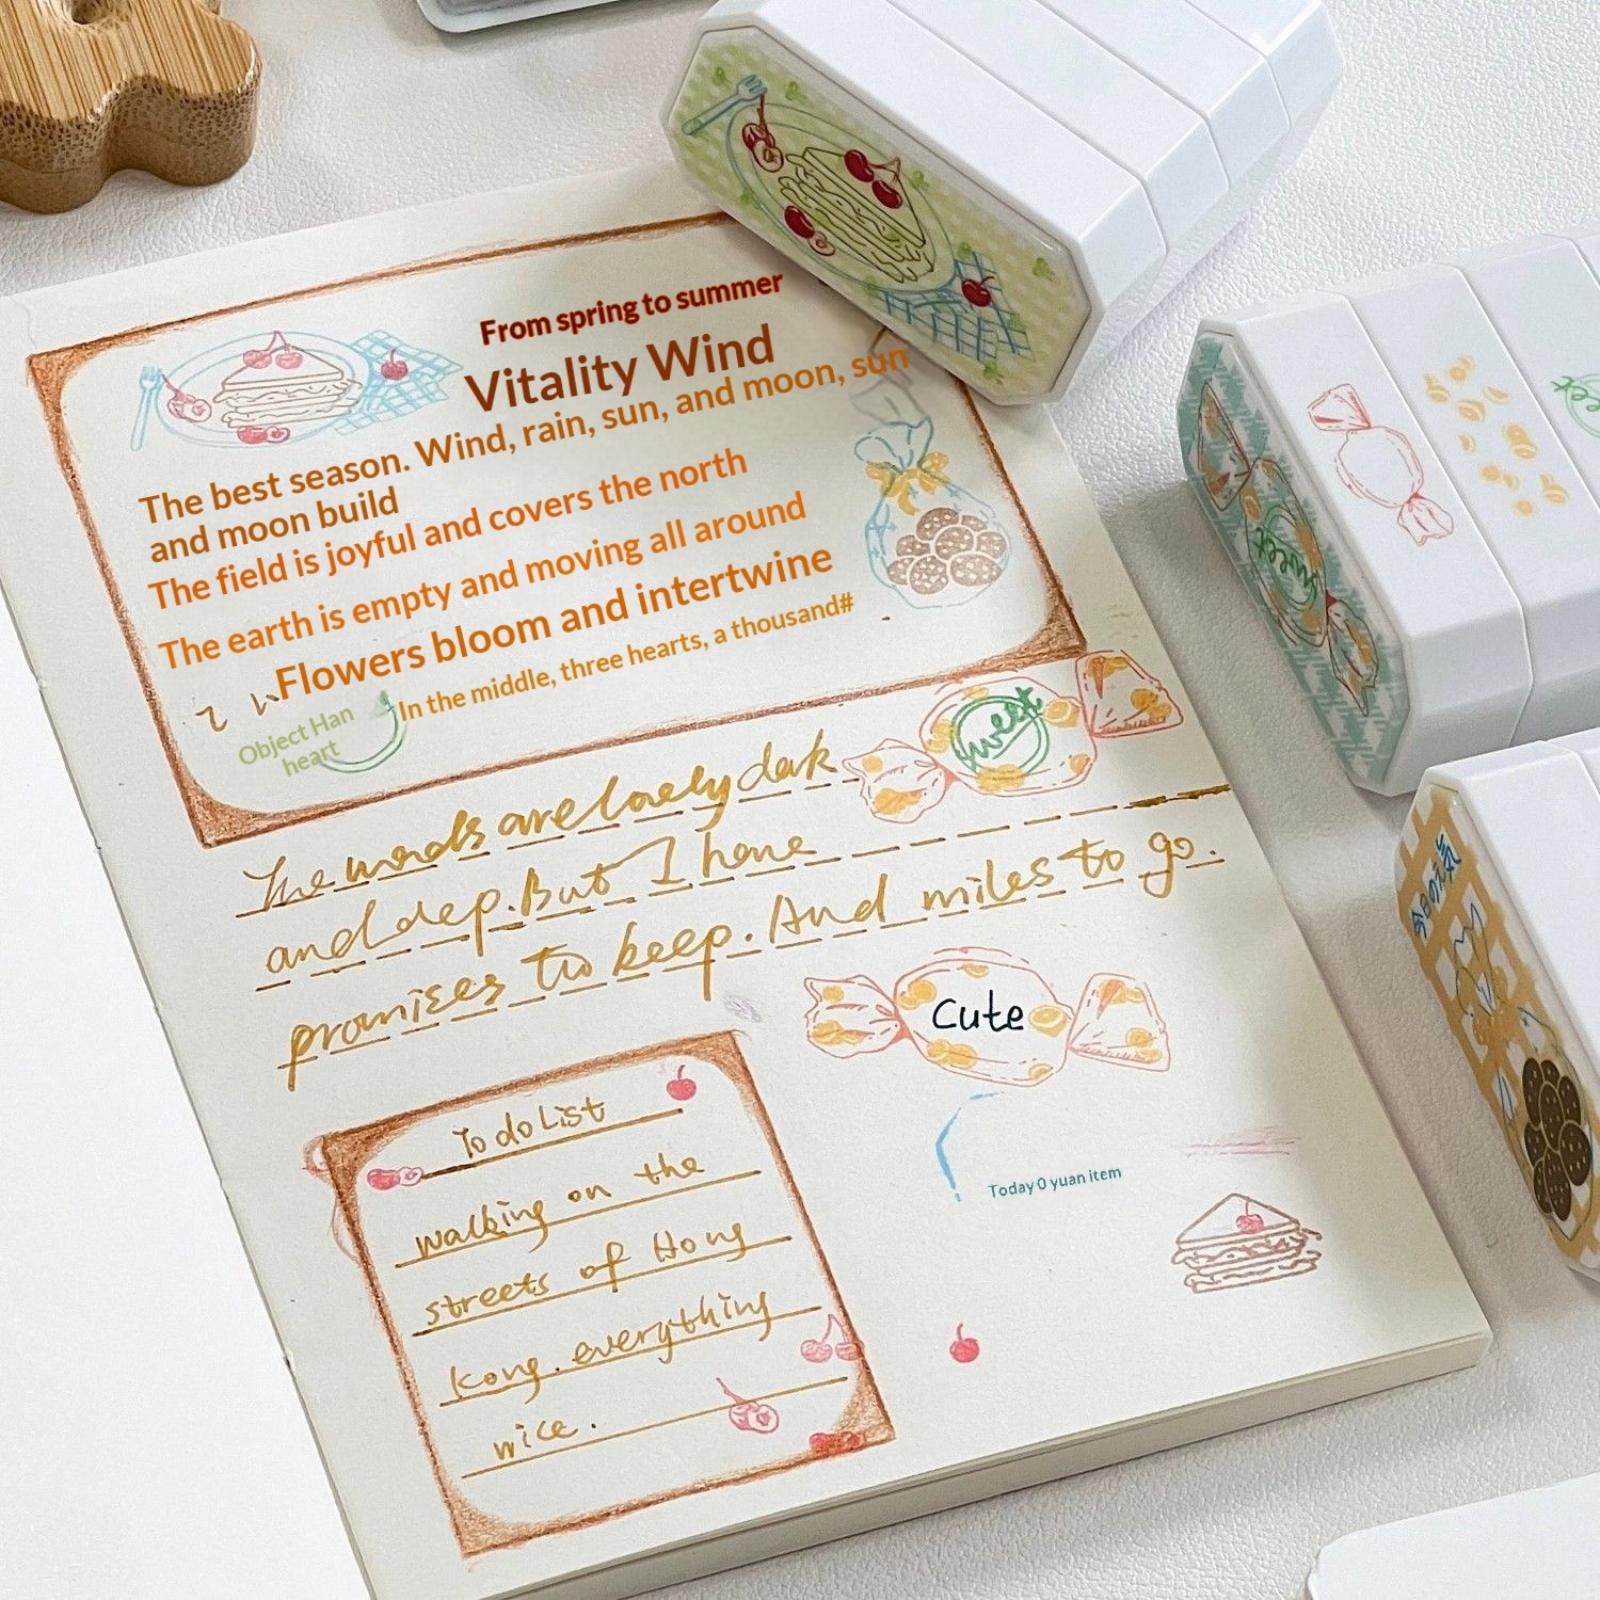 From spring to summer
Vitality Wind
The best season. Wind, rain, sun, and moon, sun
and moon build
The field is joyful and covers the north
The earth is empty and moving all around
Flowers bloom and intertwine
In the middle, three hearts, a thousand#
Object Han
heart
sweet
The woods are lovely dark
and deep. But I have
promises to keep. And miles to go.
cute
To do List
walking on the
streets of Hong
Kong. everything
nice.
Today 0 yuan item
sweet
今日の元気